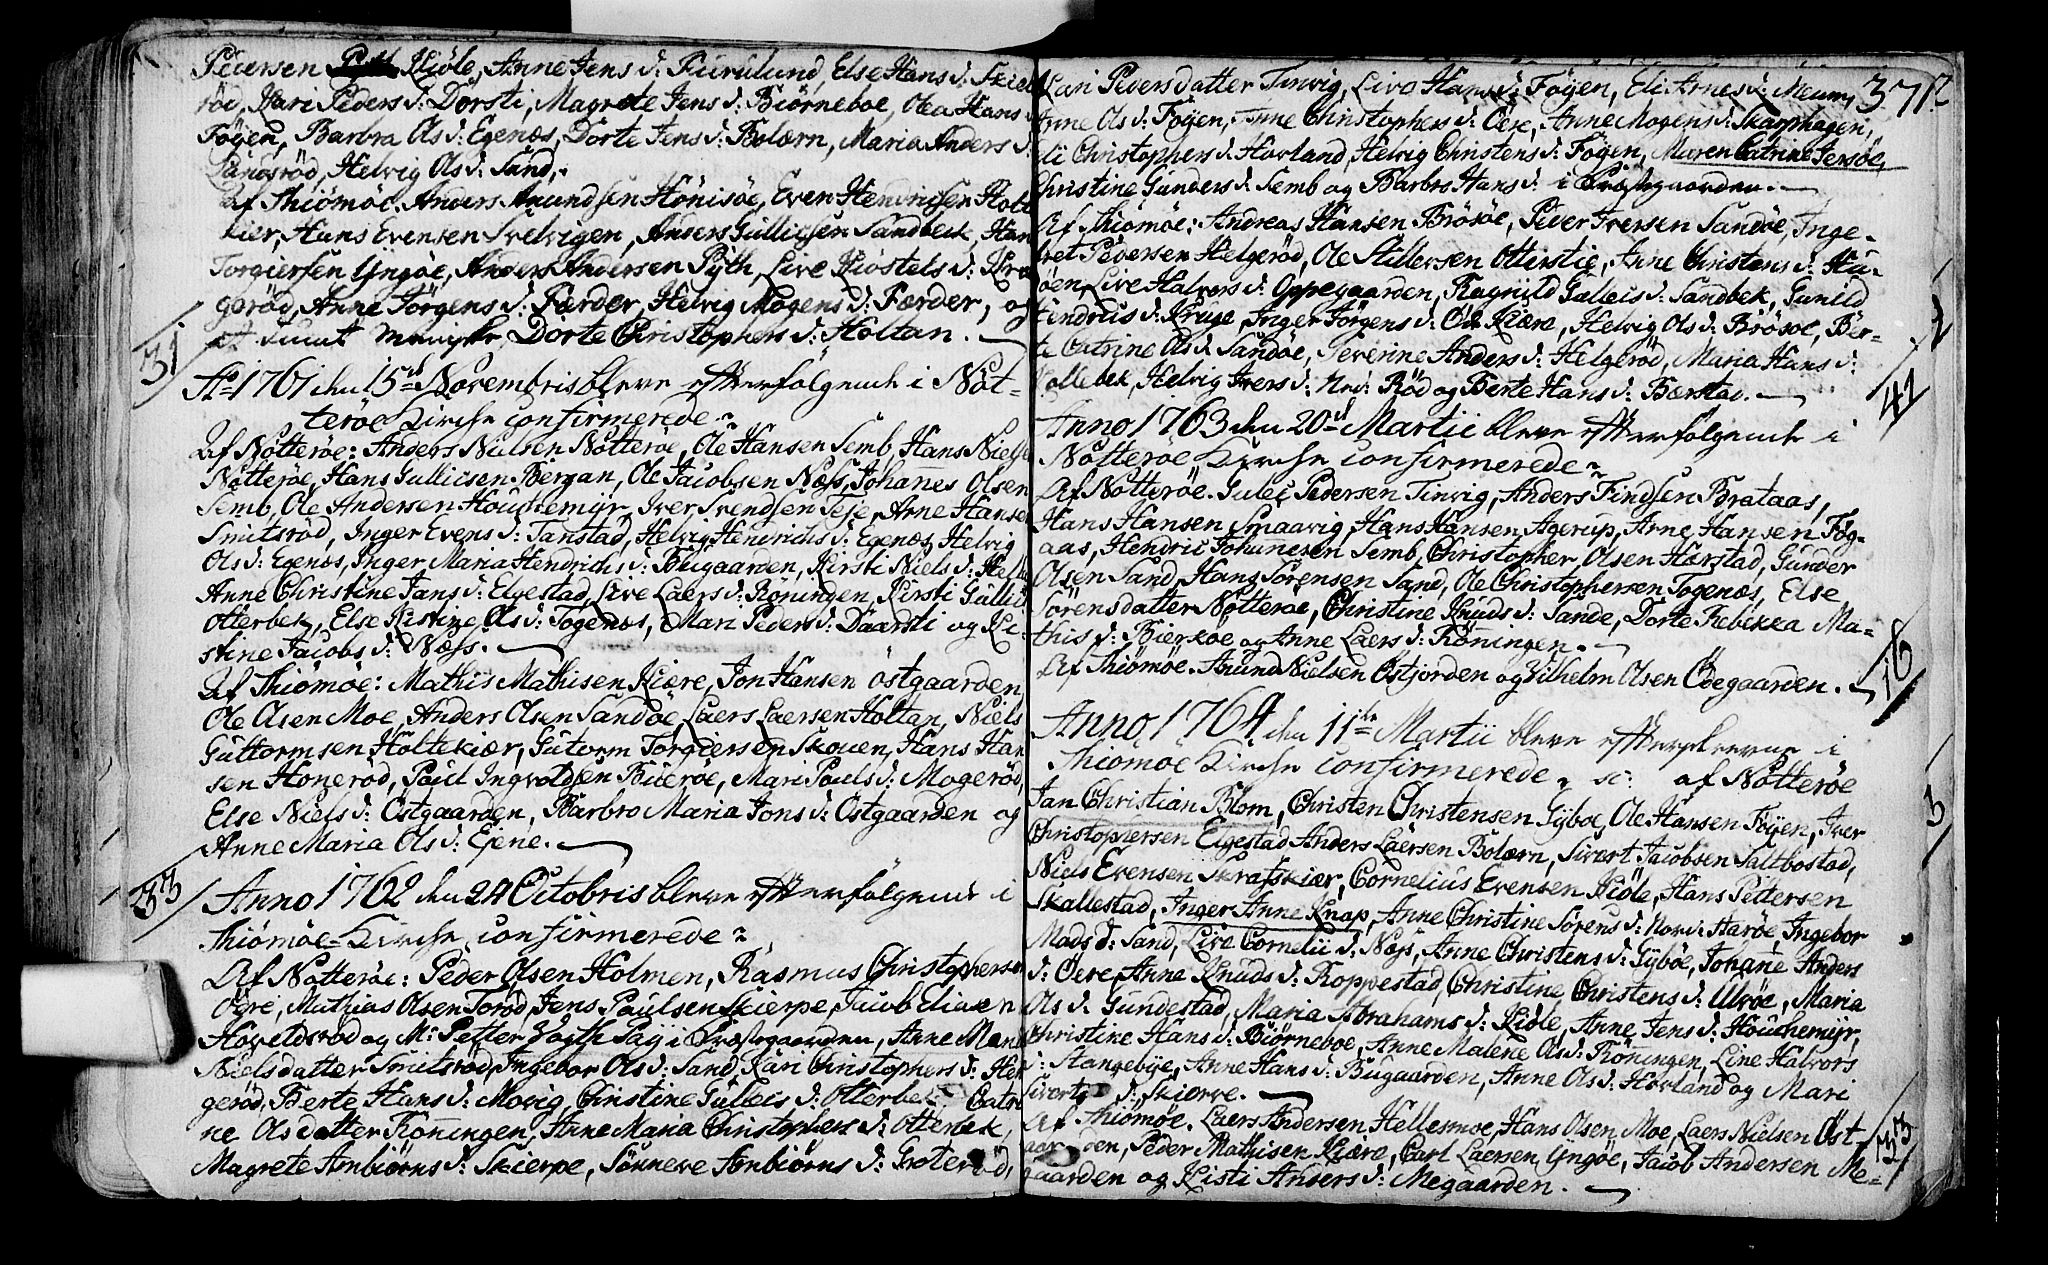 Pedersen Kiöle, Anne Jens d: Fuirulund, Else Hans d: Skier
röd, Kari Peders d: Dorsti, Magrete Jens d: Biörneboe, Olea Hans
Föyen, Barbra Ols d: Egenæs, Dorte Jens d: Bolærn, Maria Anders d:
röd, Helvig Ols d: Sand.
Af Thiömöe. Anders Amundsen Hönisöe, Even Hendrichsen Holt
kier, Hans Evensen Svelvigen, Anders Gullicsen Sandbeck, Han
Torgiersen Yngöe, Anders Andersen Pyth, Live Kiöstels d: Kra
geröd, Anne Jörgens d: Færder, Helvig Mogens d: Færder, og
Dorte Christophers d: Holtan.
31
Ao 1761 den 15de Novembris bleve efterfölgende i Not-
teröe Kirche confirmerede
Af Nötteröe: Anders Nielsen Nötteröe, Ole Hansen Semb, Hans Nielse
Nötteröe, Hans Gullicsen Bergan, Ole Jacobsen Næss, Johannes Olsen
Semb, Ole Andersen Houchemyr, Iver Svendsen Teje, Arne Hansen
Smitsröd, Inger Evens d: Tanstad, Helvig Hendrichs d: Egenæs, Helvig
Ols d: Egenæs, Inger Maria Hendrichs d: Bugaarden, Kirsti Niels d:
Anne Christine Jans d: Elgestad, Live Laers d: Röningen, Kirsti Gullic
Otterbek, Else Kistine Ols d: Togenæs, Mari Peders d: Daarsti og Ki-
stine Jacobs d: Næss.
Af Thiömöe: Mathis Mathisen Kiære, Jon Hansen Östgaarden
Ole Olsen Moe, Anders Olsen Sandöe, Laers Laersen Holtan, Niels
Guttormsen Holtekiær, Gutorm Torgiersen Skouen, Hans Han
sen Honeröd, Poul Ingvoldsen Bueröe, Mari Pouls d: Mogeröd,
Else Niels d: Östgaarden, Barbro Maria Jons d: Östgaarden og
Anne Maria Ols d: Ejene.
33
Anno 1762 den 24 Octobris bleve efterfölgende i
Thiömöe Kirche confirmerede
Af Nötteröe: Peder Olsen Holmen, Rasmus Christophersen
Oere, Mathias Olsen Toröd, Jens Paulsen Skierpe, Jacob Eliasen
Höveldsröd og Mr Petter i Præstegaarden, Anne
Nielsdatter Smitsröd, Ingebor Ols d: Sand, Kari Christophers d: Her
geröd, Berte Hans d: Movig, Christine Gulleis d: Otterbek Catri
ne Olsdatter Röningen, Anne Maria Christophers d: Otterbek,
Magrete Anbiörns d: Skierpe, Sönneve Anbiörns d: Groteröd,
Kari Pedersdatter Tinvig, Live Hans d: Föyen, Eli Arnes d: Meum, 371
Anne Ols d: Föyen, Anne Christophers d: Oere, Anne Mogens d: Skarphagen,
Eli Christophers d: Hovland, Helvig Christens d: Föyen, Maren Catrine Jersöe,
Christine Gunders d: Semb og Barbro Hans d: i Præstegaarden.
Af Thiömöe: Andreas Hansen Brösöe, Peder Iversen Sandöe, Inge-
bret Pedersen Helgeröd, Ole Stillersen Otterstie, Anne Christens d: Hu-
söen, Live Halvors d: Oppegaarden, Ragnild Galleis d: Sandbek, Gunild
Hendrics d: Kruge, Inger Jörgens d: Kiære, Helvig Ols d: Brösöe, Ber-
te Catrine Ols d: Sandöe, Severine Anders d: Helgeröd, Maria Hans d:
Hollebek, Helvig Ivers d: Ned: Röd og Berte Hans d: Bærstad.
41
Anno 1763 den 20de Martii bleve efterfölgende i
Nötteröe Kirche confirmerede
Af Nötteröe. Guleic Pedersen Tinvig, Anders Findsen Brataas,
Hans Hansen Smaavig, Hans Hansen Agerup, Arne Hansen Fög-
aas, Hendric Johannesen Semb, Christopher Olsen Harstad, Gunder
Olsen Sand, Hans Sörensen Sand, Ole Christophersen Togenæs, Else
Sörensdatter Nötteröe, Christine Knuds d: Sande, Dorte Rebekka Ma-
this d: Bierköe og Anne Laers d: Röningen.
Af Thiömöe. Amund Nielsen Östjorden og Vilhelm Olsen Ödegaarden.
16
Anno 1764 den 11te Martii bleve efterskrevne i
Thiömöe Kirche confirmerede, sc: af Nötteröe
Jan Christian Blom, Christen Christensen Gyboe, Ole Hansen Föyen, Iver
Christophersen Elgestad, Anders Laersen Bolærn, Sivert Jacobsen Saltbostad,
Niels Evensen Skrafskiær, Cornelius Evensen Kiöle, Hans Pettersen
Skallestad, Inger Anne Knap, Anne Christine Sörens d: Nordi Haröe, Ingebor
Mads d: Sand, Live Cornelii d: Næss, Anne Christens d: Gyböe, Johane Anders
d: Oere, Anne Knuds d: Roppestad, Christine Christens d: Ulvöe, Maria
Ols d: Gundestad, Maria Abrahams d: Kiöle, Anne Jens d: Houchemyr,
Christine Hans d: Biörneboe, Anne Malene Ols d: Röningen, Line Halvors
d: Stangebye, Anne Hans d: Bugaarden, Anne Ols d: Hovland og Mari
Siverts d: Skierve.
Af Thiömöe. Laers Andersen Hellesmoe, Hans Olsen Moe, Laers Nielsen Öst-
gaarden, Peder Mathisen Kiære, Carl Laersen Yngöe, Jacob Andersen Me-
gaarden og Kisti Anders d: Megaarden.
33